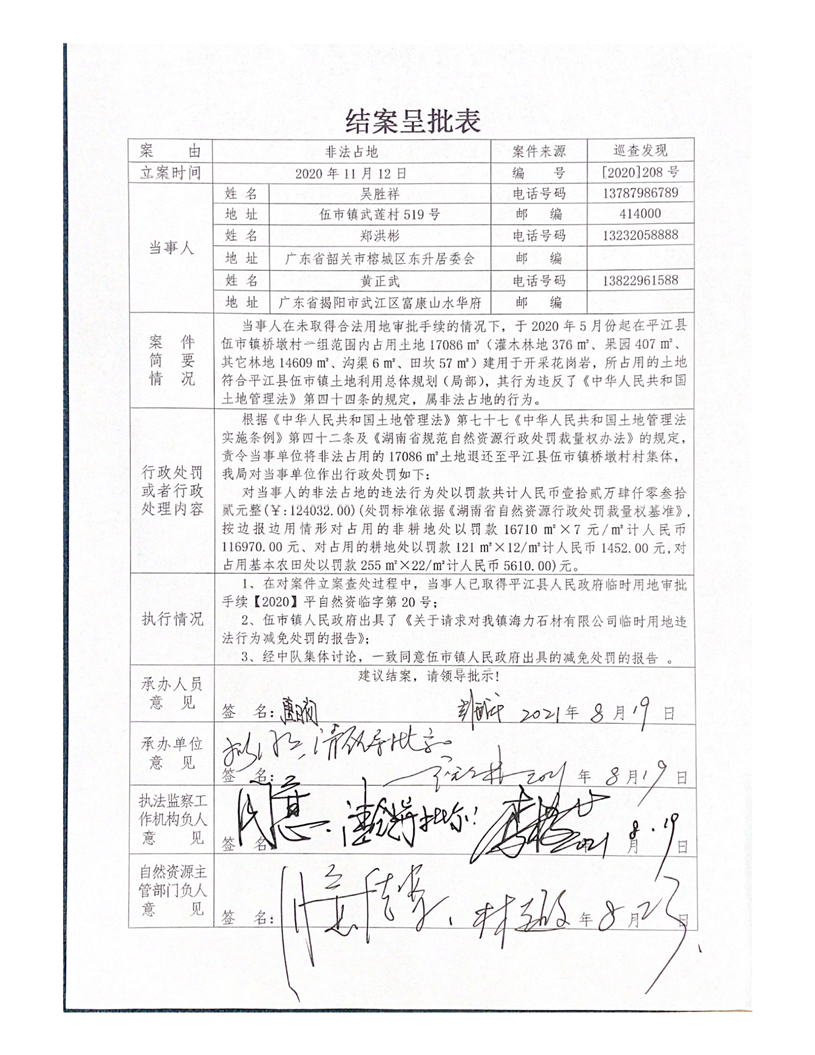 结案呈批表
案 由 非法占地 案件来源 巡查发现
立案时间 2020年11月12日 编 号 [2020]208号
当事人
姓 名 吴胜祥 电话号码 13787986789
地 址 伍市镇武莲村519号 邮 编 414000
姓 名 郑洪彬 电话号码 13232058888
地 址 广东省韶关市榕城区东升居委会 邮 编
姓 名 黄正武 电话号码 13822961588
地 址 广东省揭阳市武江区富康山水华府 邮 编
案 件
简 要
情 况
当事人在未取得合法用地审批手续的情况下，于2020年5月份起在平江县
伍市镇桥墩村一组范围内占用土地17086㎡（灌木林地376㎡、果园407㎡、
其它林地14609㎡、沟渠6㎡、田坎57㎡）建用于开采花岗岩，所占用的土地
符合平江县伍市镇土地利用总体规划（局部），其行为违反了《中华人民共和国
土地管理法》第四十四条的规定，属非法占地的行为。
行政处罚
或者行政
处理内容
根据《中华人民共和国土地管理法》第七十七《中华人民共和国土地管理法
实施条例》第四十二条及《湖南省规范自然资源行政处罚裁量权办法》的规定，
责令当事单位将非法占用的17086㎡土地退还至平江县伍市镇桥墩村村集体，
我局对当事单位作出行政处罚如下：
对当事人的非法占地的违法行为处以罚款共计人民币壹拾贰万肆仟零叁拾
贰元整(￥:124032.00)(处罚标准依据《湖南省自然资源行政处罚裁量权基准》，
按边报边用情形对占用的非耕地处以罚款16710㎡×7元/㎡计人民币
116970.00元、对占用的耕地处以罚款121㎡×12/㎡计人民币1452.00元,对
占用基本农田处以罚款255㎡×22/㎡计人民币5610.00)元。
执行情况
1、在对案件立案查处过程中，当事人已取得平江县人民政府临时用地审批
手续【2020】平自然资临字第20号；
2、伍市镇人民政府出具了《关于请求对我镇海力石材有限公司临时用地违
法行为减免处罚的报告》；
3、经中队集体讨论，一致同意伍市镇人民政府出具的减免处罚的报告 。
承办人员
意 见
建议结案，请领导批示!
签 名: 2021年8月19日
承办单位
意 见
签 名: 2021年8月19日
执法监察工
作机构负人
意 见
签 名 2021 8月19日
自然资源主
管部门负人
意 见
签 名: 年8月23日